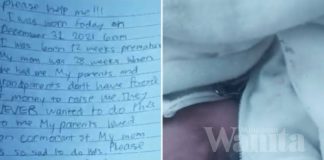 please help me!!!
I was born today on
December 31 2021 6am
I was born 12 weeks premature
My mom was 28 weeks when
she had me My parents and
grandparents dont have
money to raise me They
NEVER wanted to do this
to me My parents
My mom
is so sad to do this Please
Wanita